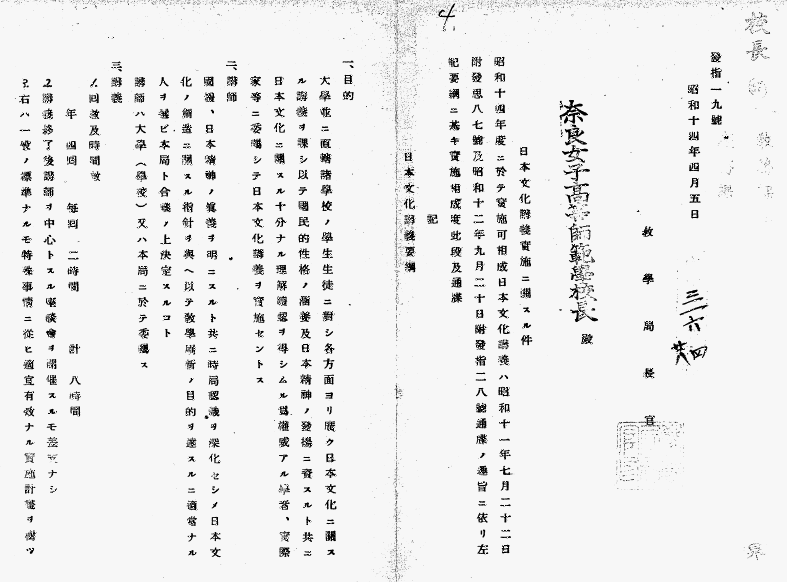 4
校長
發指一九號
昭和十四年四月五日
教學局長官
奈良女子高等師範學校長 殿
日本文化講義實施ニ關スル件
昭和十四年度ニ於テ實施可相成日本文化講義ハ昭和十一年七月二十二日
附發思八七號及昭和十二年九月二十日附發指二八號通牒ノ趣旨ニ依リ左
記要綱ニ基キ實施相成度此段及通牒
記
日本文化講義要綱
一、目的
大學並ニ直轄諸學校ノ學生生徒ニ對シ各方面ヨリ廣ク日本文化ニ關ス
ル講義ヲ課シ以テ國民的性格ノ涵養及日本精神ノ發揚ニ資スルト共ニ
日本文化ニ關スル十分ナル理解體認ヲ得シムル爲權威アル學者、實際
家等ニ委囑シテ日本文化講義ヲ實施セントス
二、講師
國體、日本精神ノ眞義ヲ明ニスルト共ニ時局認識ヲ深化セシメ日本文
化ノ創造ニ關スル指針ヲ與ヘ以テ教學刷新ノ目的ヲ達スルニ適當ナル
人ヲ選ビ本局ト合議ノ上決定スルコト
講師ハ大學(學校)又ハ本局ニ於テ委囑ス
三、講義
1.回數及時間數
年 四回 毎回 二時間 計 八時間
2.講義終了後講師ヲ中心トスル座談會ヲ開催スルモ差支ナシ
3.右ハ一般ノ標準ナルモ特殊事情ニ從ヒ適宜有效ナル實施計畫ヲ樹ツ